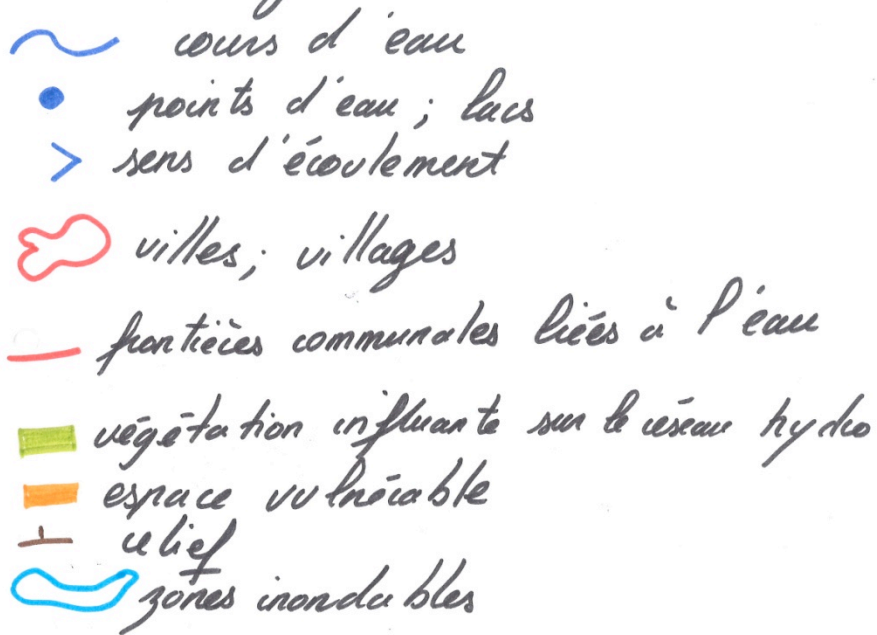 cours d'eau
points d'eau ; lacs
sens d'écoulement
villes ; villages
frontières communales liées à l'eau
végétation influante sur le réseau hydro
espace vulnérable
relief
zônes inondables